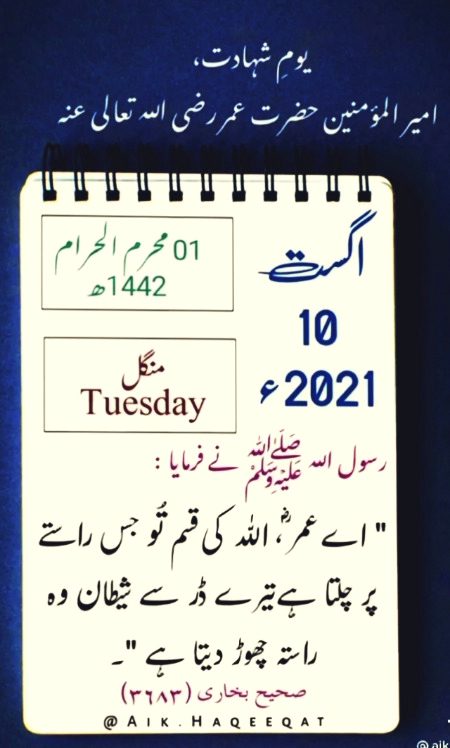 یومِ شہادت،
امیر المؤمنین حضرت عمر رضی اللہ تعالی عنہ
01 محرم الحرام
1442ھ
اگست
10
2021ء
منگل
Tuesday
رسول اللہ صَلَّى اللہ عَلَيْهِ وَسَلَّمْ نے فرمایا :
" اے عمرؓ، اللہ کی قسم تُو جس راستے
پر چلتا ہے تیرے ڈر سے شیطان وہ
راستہ چھوڑ دیتا ہے "۔
صحیح بخاری (۳٦۸۳)
@AIK.HAQEEQAT
@aik